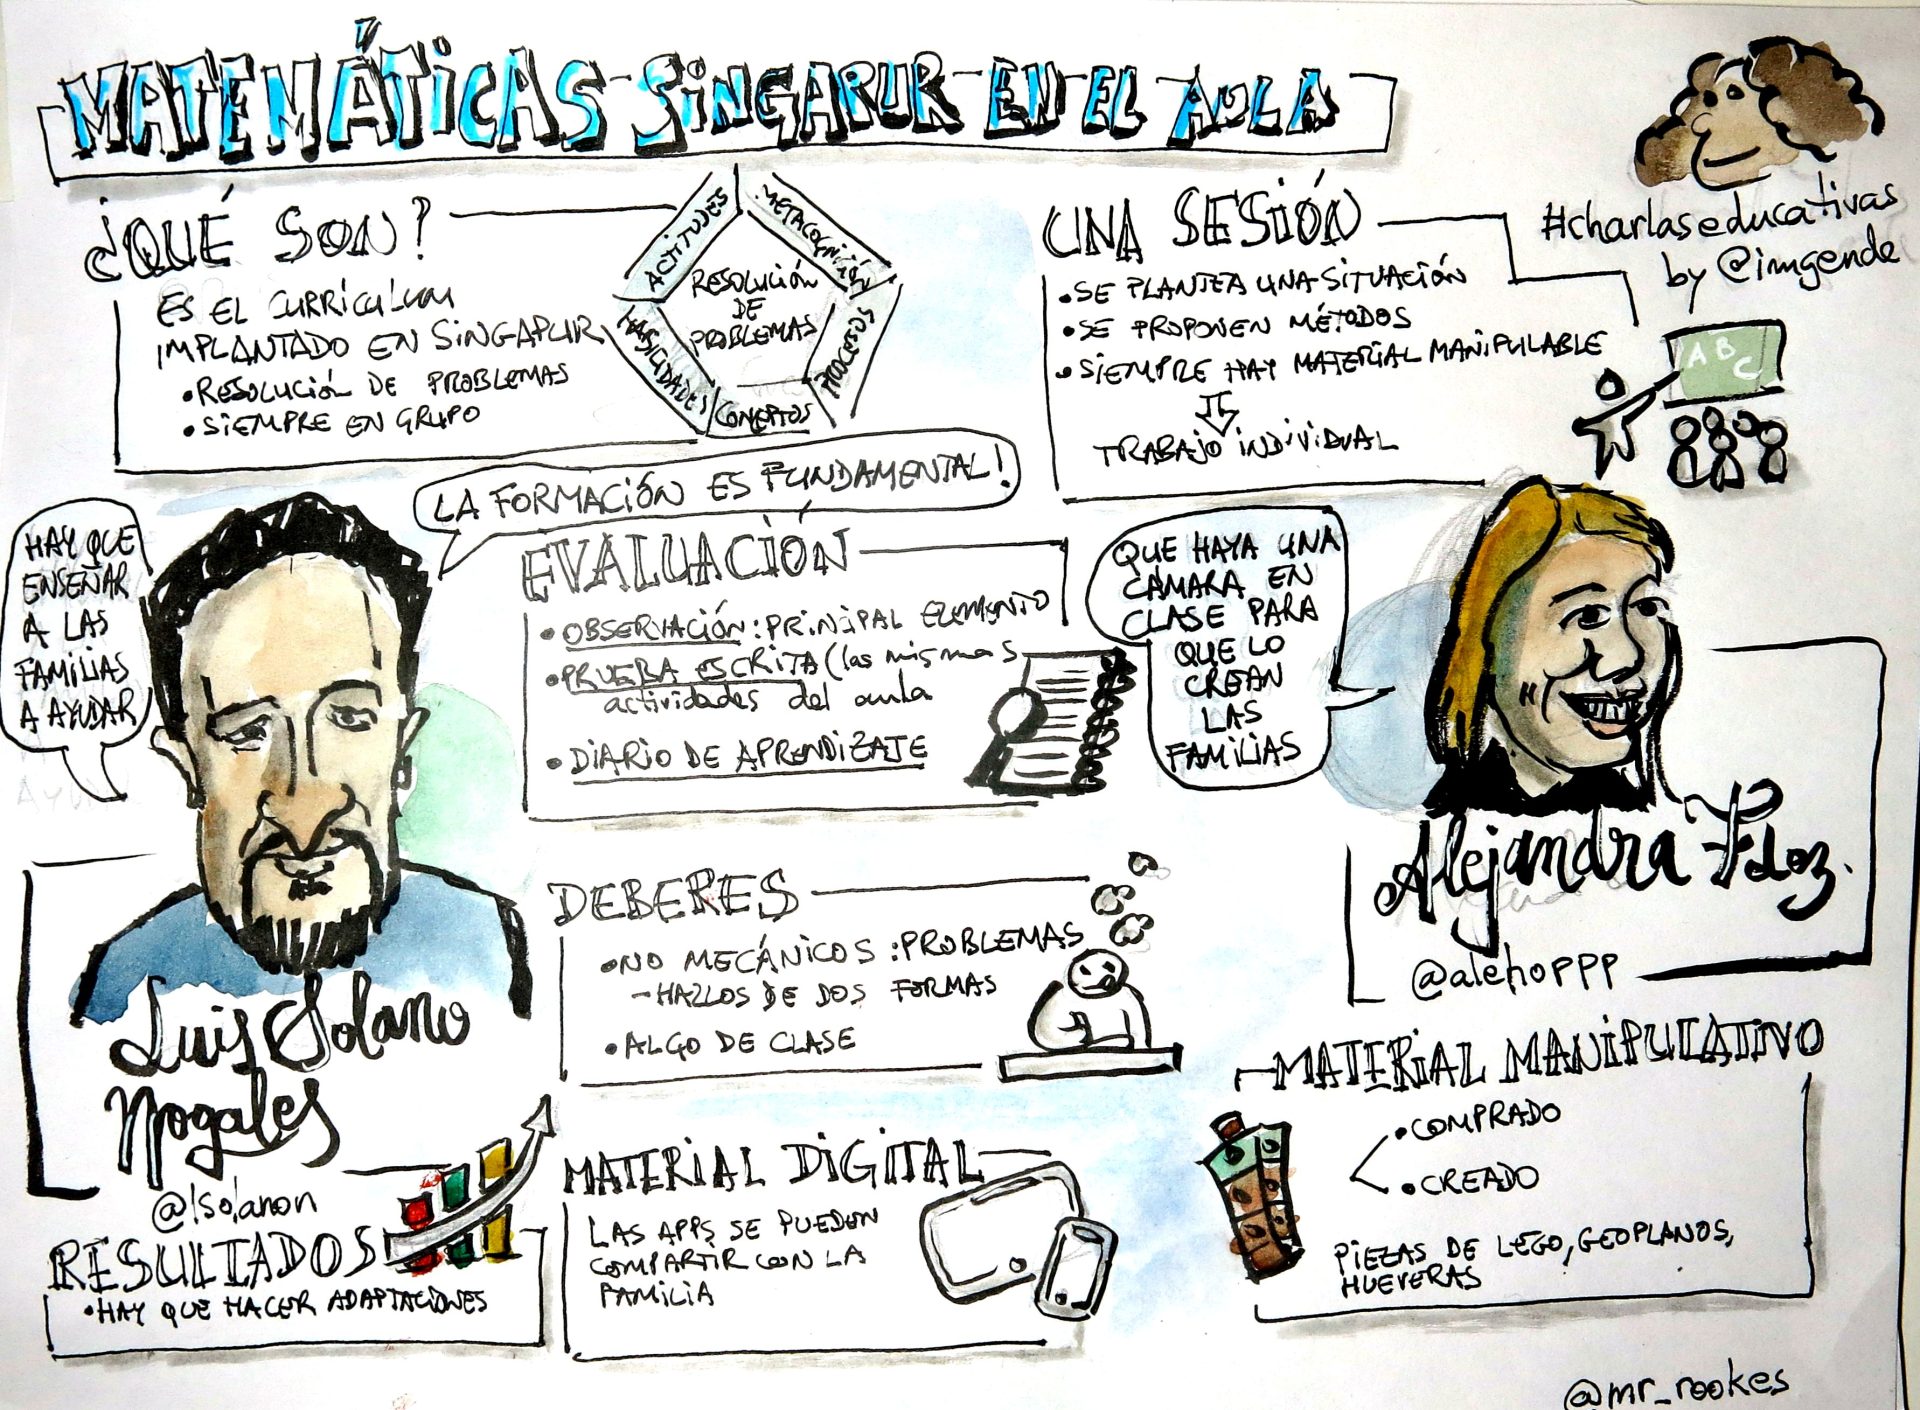 MATEMÁTICAS SINGAPUR EN EL AULA
#charlaseducativas
by @imgende
¿QUÉ SON?
ES EL CURRICULUM
IMPLANTADO EN SINGAPUR
• RESOLUCIÓN DE PROBLEMAS
• SIEMPRE EN GRUPO
ACTITUDES
METACOGNICIÓN
PROCESOS
CONCEPTOS
HABILIDADES
RESOLUCIÓN
DE
PROBLEMAS
UNA SESIÓN
• SE PLANTEA UNA SITUACIÓN
• SE PROPONEN MÉTODOS
• SIEMPRE HAY MATERIAL MANIPULABLE
TRABAJO INDIVIDUAL
A B C
LA FORMACIÓN ES FUNDAMENTAL!
HAY QUE
ENSEÑAR
A LAS
FAMILIAS
A AYUDAR
EVALUACIÓN
• OBSERVACIÓN: PRINCIPAL ELEMENTO
• PRUEBA ESCRITA (las mismas
actividades del aula
• DIARIO DE APRENDIZATE
QUE HAYA UNA
CÁMARA EN
CLASE PARA
QUE LO
CREAN
LAS
FAMILIAS
Alejandra Fdez.
@alehoppp
Luis Solano
Nogales
@lsolanon
DEBERES
• NO MECÁNICOS: PROBLEMAS
- HAZLOS DE DOS FORMAS
• ALGO DE CLASE
RESULTADOS
• HAY QUE HACER ADAPTACIONES
MATERIAL DIGITAL
LAS APPS SE PUEDEN
COMPARTIR CON LA
FAMILIA
MATERIAL MANIPULATIVO
• COMPRADO
• CREADO
PIEZAS DE LEGO, GEOPLANOS,
HUEVERAS
@mr_rookes